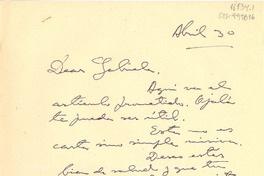 Abril 30
Dear Gabriela.
Aquí va el
artículo prometido. Ojalá
te pueda ser útil.
Esta no es
carta sino simple
Deseo estés
bien de salud y que